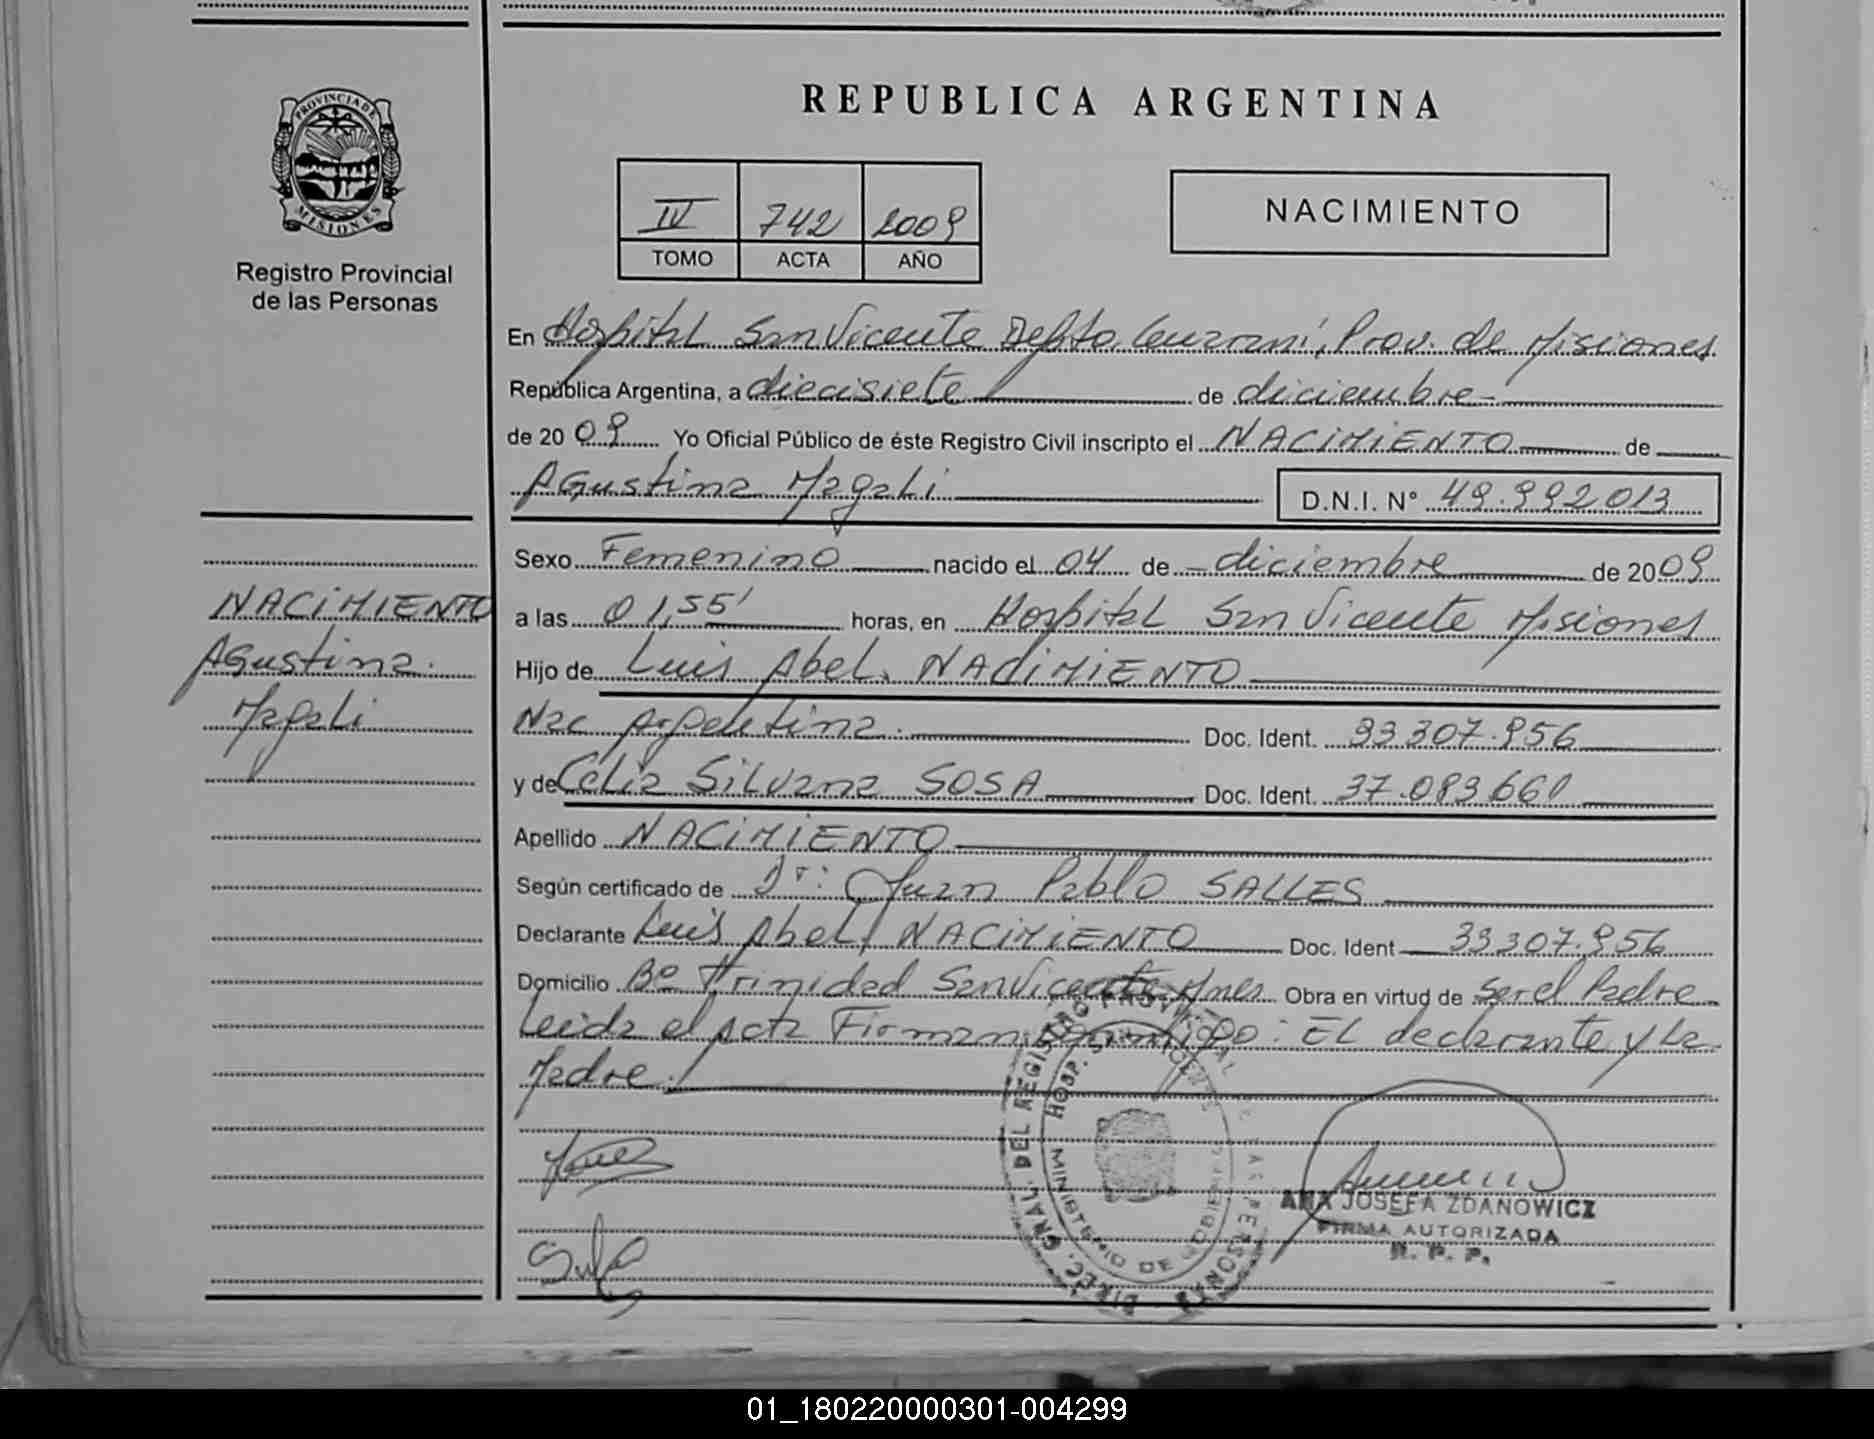 REPUBLICA ARGENTINA
PROVINCIA DE
MISIONES
Registro Provincial
de las Personas
IV 742 2009
TOMO ACTA AÑO
NACIMIENTO
En Hospital San Vicente Depto Guaraní, Prov. de Misiones
República Argentina, a diecisiete de diciembre
de 2009 Yo Oficial Público de éste Registro Civil inscripto el NACIMIENTO de
Agustina Magali D.N.I. Nº 49.992013
Sexo Femenino nacido el 04 de diciembre de 2009
a las 01,55' horas, en Hospital San Vicente Misiones
Hijo de Luis Abel, NACIMIENTO
Nac Argentina. Doc. Ident. 33307.956
y de Celia Silvana SOSA Doc. Ident. 37.083660
Apellido NACIMIENTO
Según certificado de Dr: Juan Pablo SALLES
Declarante Luis Abel, NACIMIENTO Doc. Ident 33307.956
Domicilio Bº Trinidad San Vicente Mnes Obra en virtud de Ser el Padre
Leida el acta Firman conmigo: EL declarante y La
Madre.
NACIMIENTO
Agustina
Magali
DIREC. GRAL. DEL REGISTRO PROVINCIAL DE LAS PERSONAS
HOSP. SAN VICENTE
MINISTERIO DE GOBIERNO
ANA JOSEFA ZDANOWICZ
FIRMA AUTORIZADA
R. P. P.
01_180220000301-004299